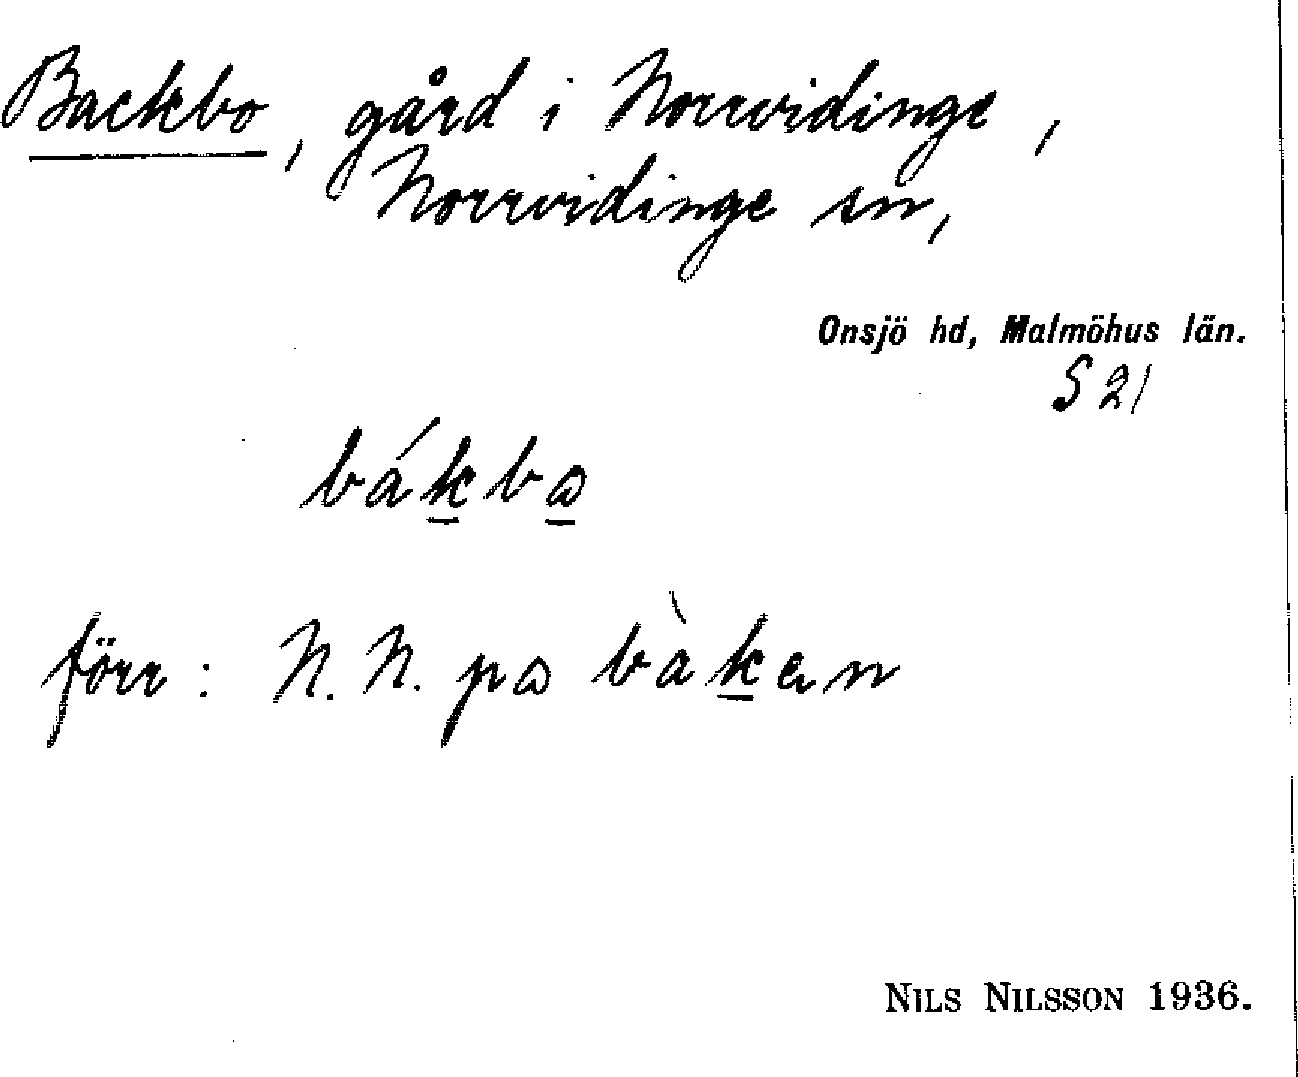 Backbo, gård i Norrvidinge,
Norrvidinge sn,
Onsjö hd, Malmöhus län.
S 21
bákbɷ
förr: N. N. pɷ bàkɐn
NILS NILSSON 1936.